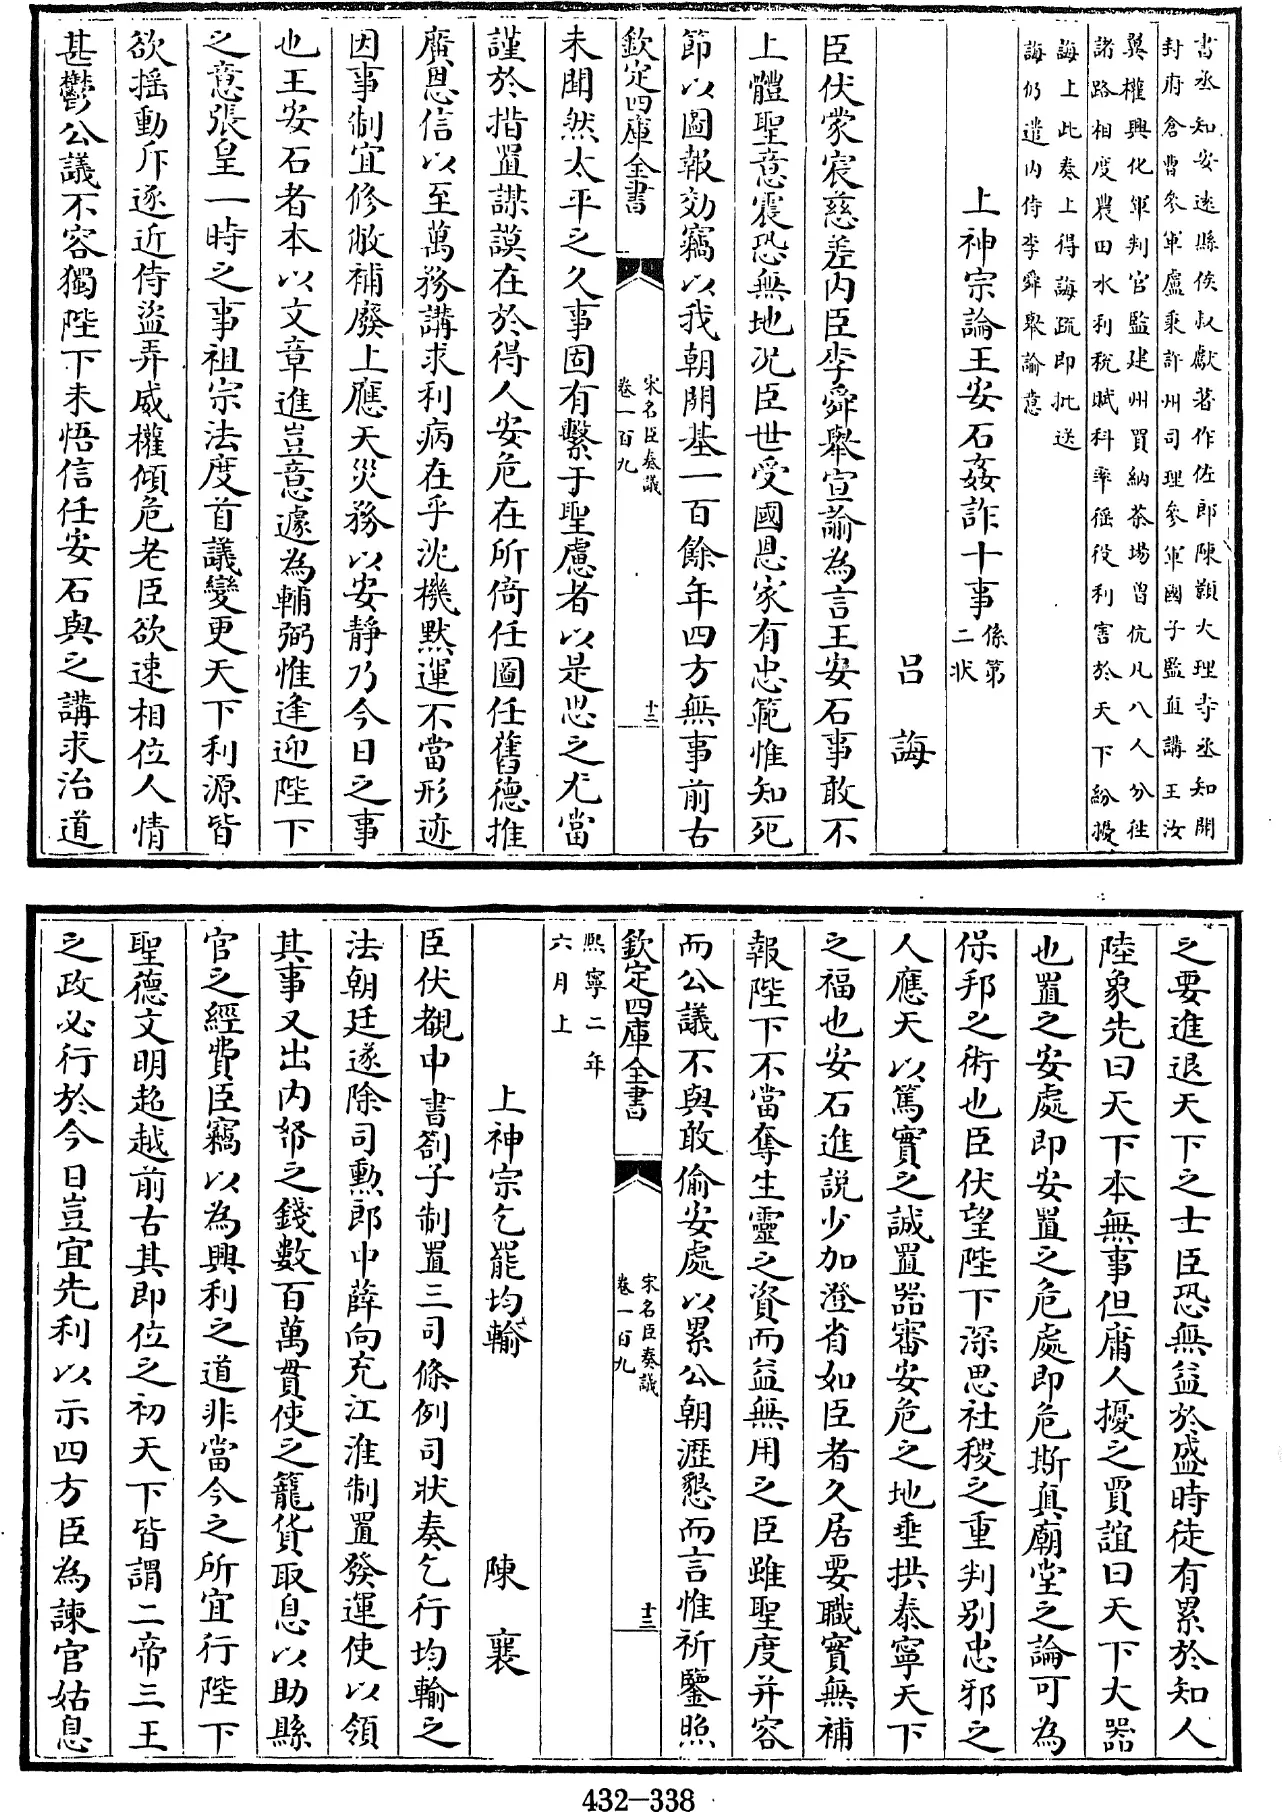 書丞知安遠縣侯叔獻著作佐郎陳顥大理寺丞知開
封府倉曹叅軍盧秉許州司理叅軍國子監直講王汝
翼權興化軍判官監建州買納茶場曾伉凡八人分徃
諸路相度農田水利稅賦科率徭役利害於天下紛擾
誨上此奏上得誨疏即批送
誨仍遣内侍李舜舉諭意
上神宗論王安石姦詐十事 係第二狀
吕誨
臣伏蒙宸慈差内臣李舜舉宣諭為言王安石事敢不
上體聖意震恐無地况臣世受國恩家有忠範惟知死
節以圖報効竊以我朝開基一百餘年四方無事前古
欽定四庫全書
宋名臣奏議
卷一百九
十二
未聞然太平之久事因有繫于聖慮者以是思之尤當
謹於措置謀謨在於得人安危在所倚任圖任舊德推
廣恩信以至萬務講求利病在乎沈機默運不當形迹
因事制宜修敝補廢上應天災務以安靜乃今日之事
也王安石者本以文章進豈意遽為輔弼惟逢迎陛下
之意張皇一時之事祖宗法度首議變更天下利源皆
欲揺動斥逐近侍盜弄威權傾危老臣欲速相位人情
甚鬱公議不容獨陛下未悟信任安石與之講求治道
之要進退天下之士臣恐無益於盛時徒有累於知人
陸象先曰天下本無事但庸人擾之賈誼曰天下大器
也置之安處即安置之危處即危斯真廟堂之論可為
保邦之術也臣伏望陛下深思社稷之重判別忠邪之
人應天以篤實之誠置器審安危之地垂拱泰寧天下
之福也安石進說少加澄省如臣者久居要職實無補
報陛下不當奪生靈之資而益無用之臣雖聖度并容
而公議不與敢偷安處以累公朝瀝懇而言惟祈鑒照
欽定四庫全書
宋名臣奏議
卷一百九
十三
熈寧二年
六月上
上神宗乞罷均輸
陳襄
臣伏覩中書劄子制置三司條例司狀奏乞行均輸之
法朝廷遂除司勲郎中薛向充江淮制置發運使以領
其事又出内帑之錢數百萬貫使之籠貨取息以助縣
官之經費臣竊以為興利之道非當今之所宜行陛下
聖德文明超越前古其即位之初天下皆謂二帝三王
之政必行於今日豈宜先利以示四方臣為諫官姑息
432-338